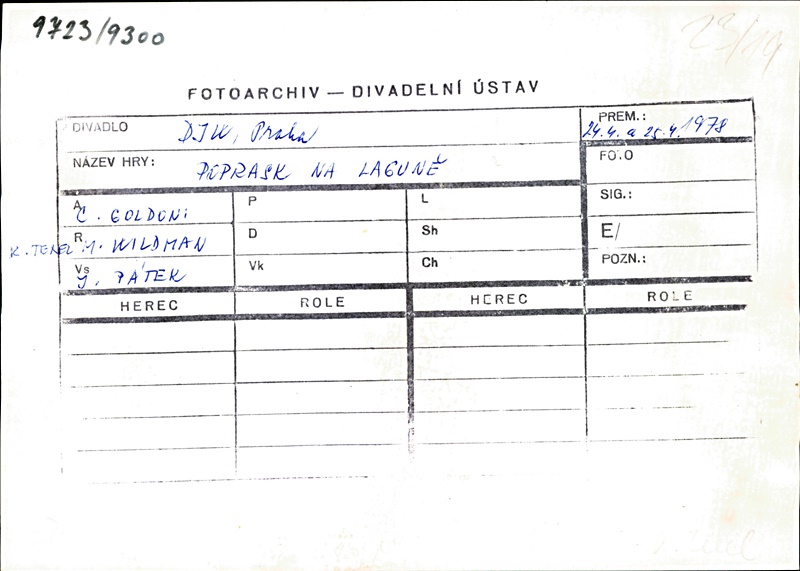 9723/9300
23/19
FOTOARCHIV — DIVADELNÍ ÚSTAV
DIVADLO DJW, Praha
PREM.: 24.4. a 25.4.1978
NÁZEV HRY: POPRASK NA LAGUNĚ
FOTO
A C. GOLDONI
P
L
SIG.:
R K. TEXEL M. WILDMAN
D
Sh
E/
Vs J. PÁTEK
Vk
Ch
POZN.:
HEREC ROLE HEREC ROLE